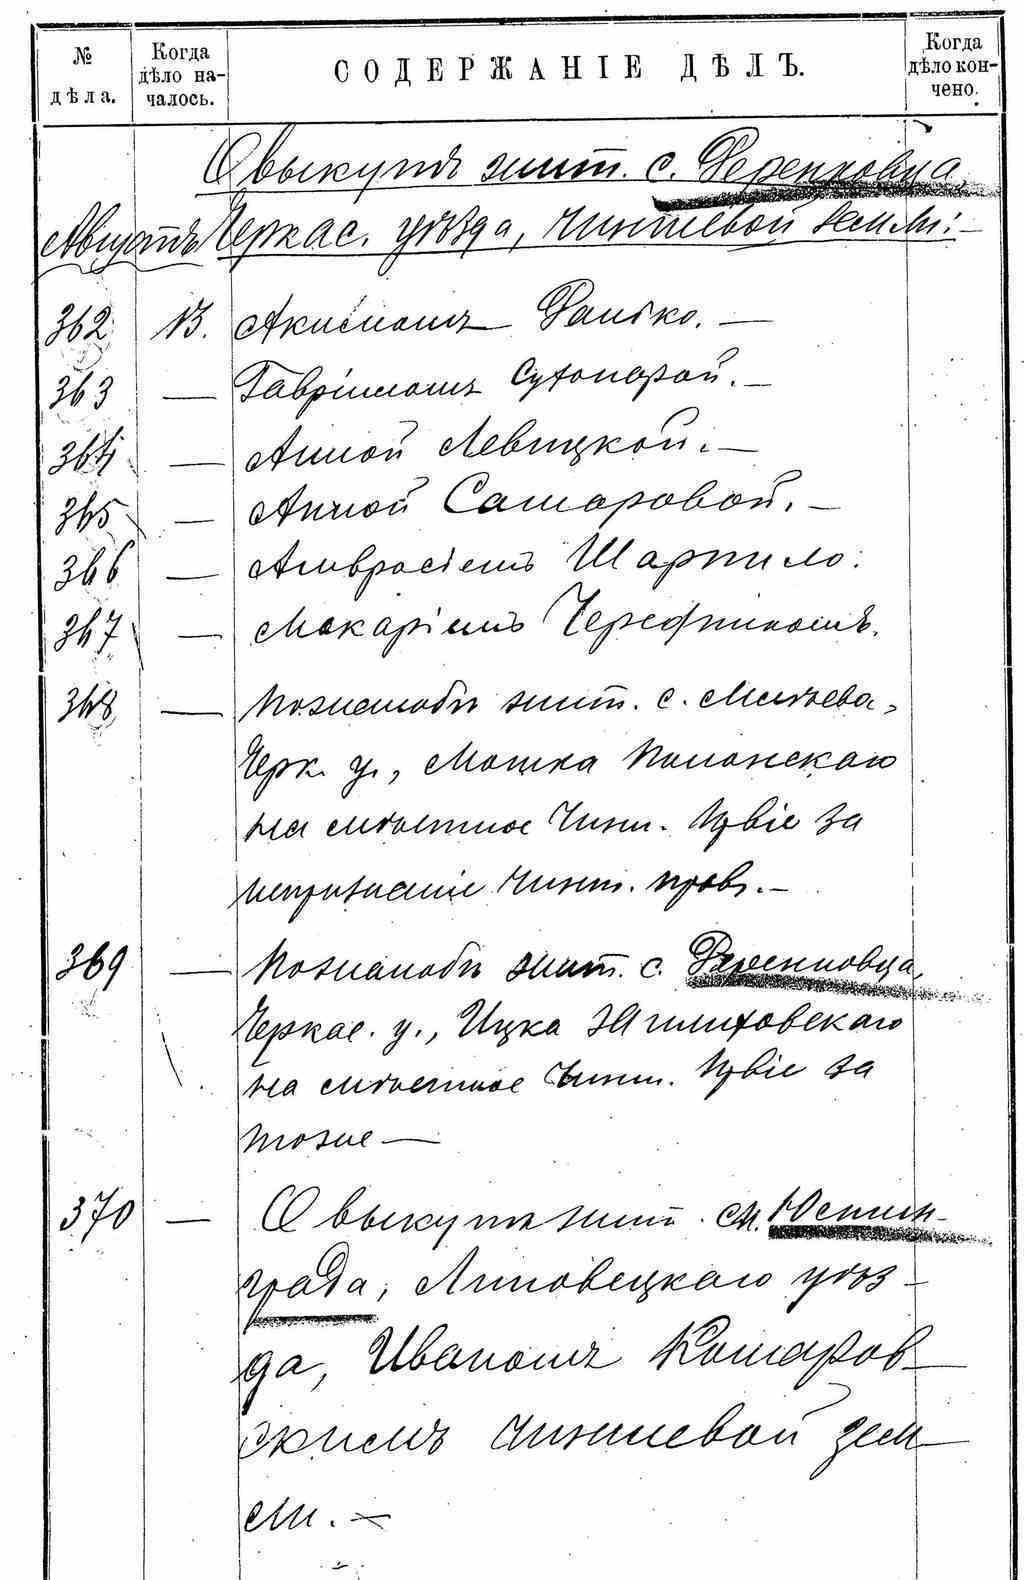 № дѣла.
Когда дѣло на-чалось.
СОДЕРЖАНІЕ ДѢЛЪ.
Когда дѣло кон-чено.
О выкупѣ жит. с. Деренковца,
Августъ Черкас. уѣзда, чиншевой земли:—
362 13. Акимомъ —
363 — Гавріиломъ Сухопарой.—
364 — Анной Левицкой.—
365 — Анной Самаровой.—
366 — Амвросіемъ Шарпило.
367 — Макаріемъ
368 — По жалобѣ жит. с. Млѣева,
Черк. у., Мошка Полонскаго
на мѣстное Чинш. Пр-віе за
непризнаніе чинш. правъ.—
369 — По жалобѣ жит. с. Деренковца,
Черкас. у., Ицка
на мѣстное Чинш. Пр-віе за
тоже —
370 — О выкупѣ жит. м. Юстин-
града, Липовецкаго уѣз-
да, Иваномъ Комаров-
скимъ чиншевой зем-
ли.—